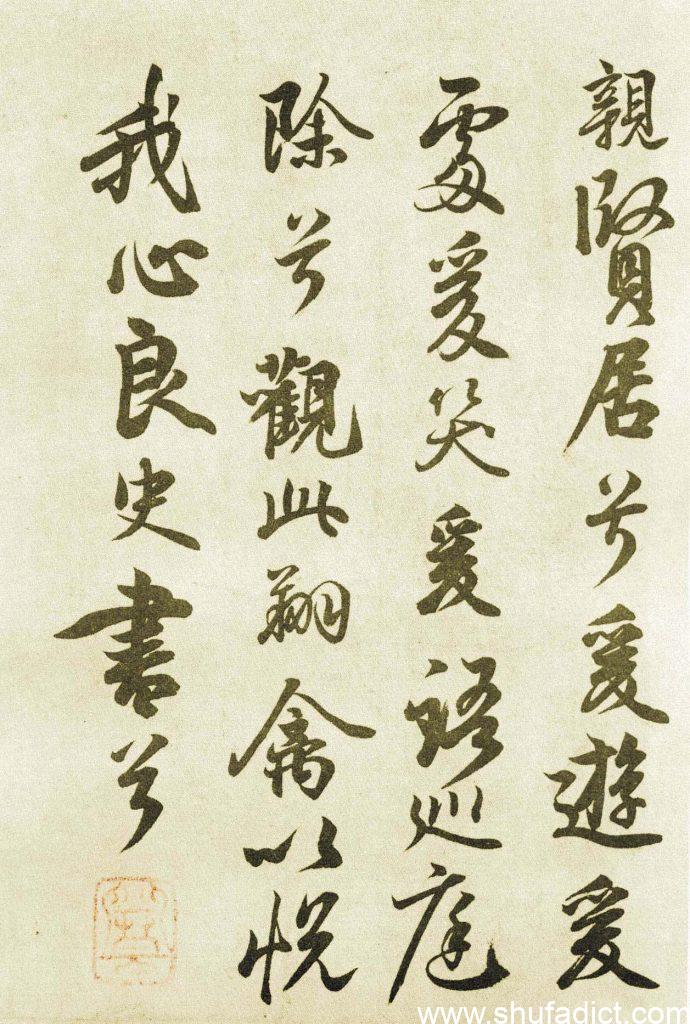 親賢居兮爰遊爰
處爰笑爰語巡庭
除兮觀此翔禽以悅
我心良史書兮
www.shufadict.com